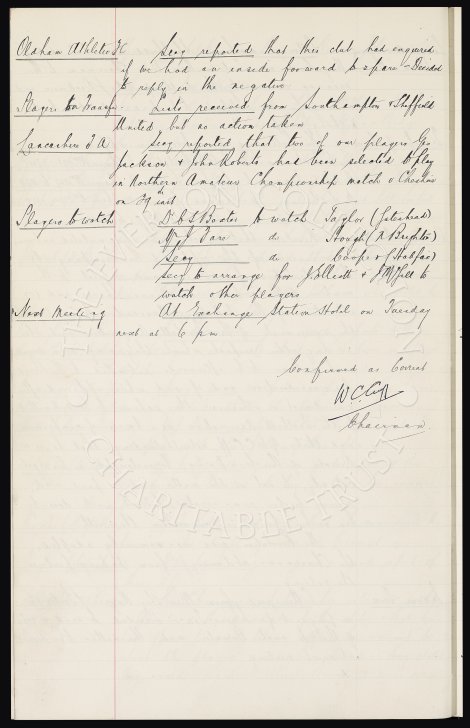 Oldham Athletic FC Secy reported that this club had enquired
if we had an inside forward to spare - Decided
to reply in the negative
Players on Transfer Lists received from Southampton & Sheffield
United but no action taken
Lancashire F A Secy reported that two of our players Geo
Jackson & John Roberts had been selected to play
in Northern Amateur Championship match v Cheshire
on inst
Players to watch Dr C S Baxter to watch Taylor (Gateshead)
Mr J Fare do Hough (N Brighton)
Secy do Coope (Halifax)
Secy to arrange for J Elliott & J McGill to
watch other players
Next Meeting At Exchange Station Hotel on Tuesday
next at 6 pm
Confirmed as Correct
W.C. Cuff
Chairman
THE EVERTON COLLECTION
CHARITABLE TRUST